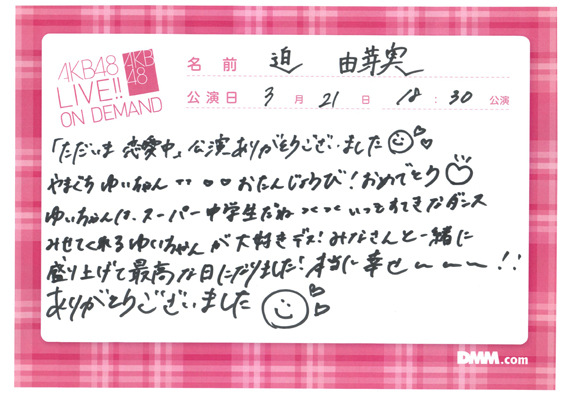 AKB48
LIVE!!
ON DEMAND
AKB
48
名前 迫 由芽実
公演日 3月21日 18:30 公演
「ただいま 恋愛中」公演ありがとうございました
やまぐち ゆいちゃん ♡♡おたんじょうび!おめでとう
ゆいちゃんは、スーパー中学生だね いつもすてきなダンス
みせてくれるゆいちゃんが大好きデス!みなさんと一緒に
盛り上げて最高な日になりました!本当に幸せ〜〜〜!!
ありがとうございました
DMM.com